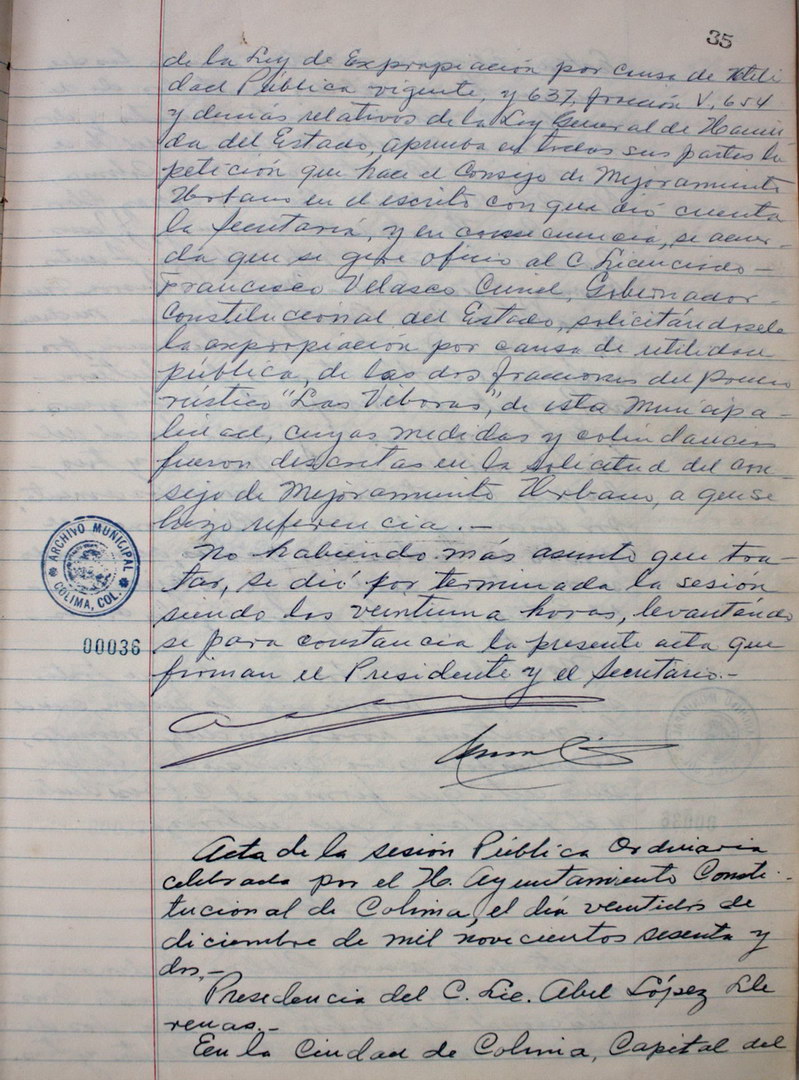 35
de la Ley de Expropiación por causa de Utili
dad Pública vigente, y 637, fracción V, 654
y demás relativos de la Ley General de Hacien
da del Estado, aprueba en todas sus partes la
petición que hace el Consejo de Mejoramiento
Urbano en el escrito con que dió cuenta
la Secretaría, y en consecuencia, se acuer
da que se gire oficio al C. Licenciado-
Francisco Velasco Curiel, Gobernador-
Constitucional del Estado, solicitándosele
la expropiación por causa de utilidad
pública, de las dos fracciones del predio
rústico "Las Víboras", de esta Municipa-
lidad, cuyas medidas y colindancias
fueron descritas en la solicitud del Con-
sejo de Mejoramiento Urbano, a que se
hizo referencia.-
No habiendo más asunto que tra-
tar, se dió por terminada la sesión
siendo las veintiuna horas, levantándo
se para constancia la presente acta que
firman el Presidente y el Secretario.-
ARCHIVO MUNICIPAL
COLIMA, COL.
00036
Acta de la sesión Pública Ordinaria
celebrada por el H. Ayuntamiento Consti-
tucional de Colima, el día veintidos de
diciembre de mil novecientos sesenta y
dos.-
Presidencia del C. Lic. Abel López Lle
renas.-
En la Ciudad de Colima, Capital del